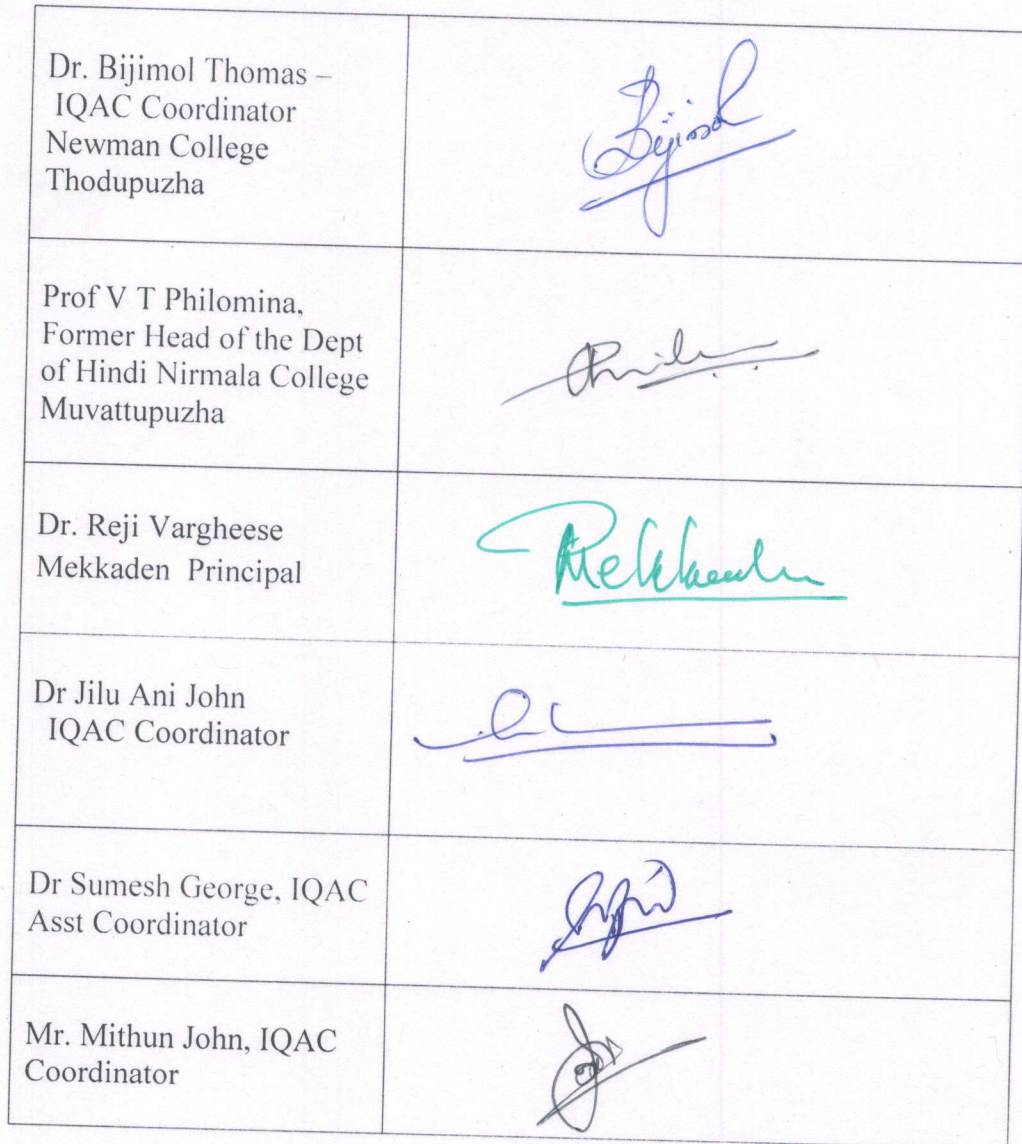 Dr. Bijimol Thomas –
IQAC Coordinator
Newman College
Thodupuzha
Bijimol
Prof V T Philomina,
Former Head of the Dept
of Hindi Nirmala College
Muvattupuzha
Dr. Reji Vargheese
Mekkaden Principal
Mekkaden
Dr Jilu Ani John
IQAC Coordinator
Dr Sumesh George, IQAC
Asst Coordinator
Mr. Mithun John, IQAC
Coordinator